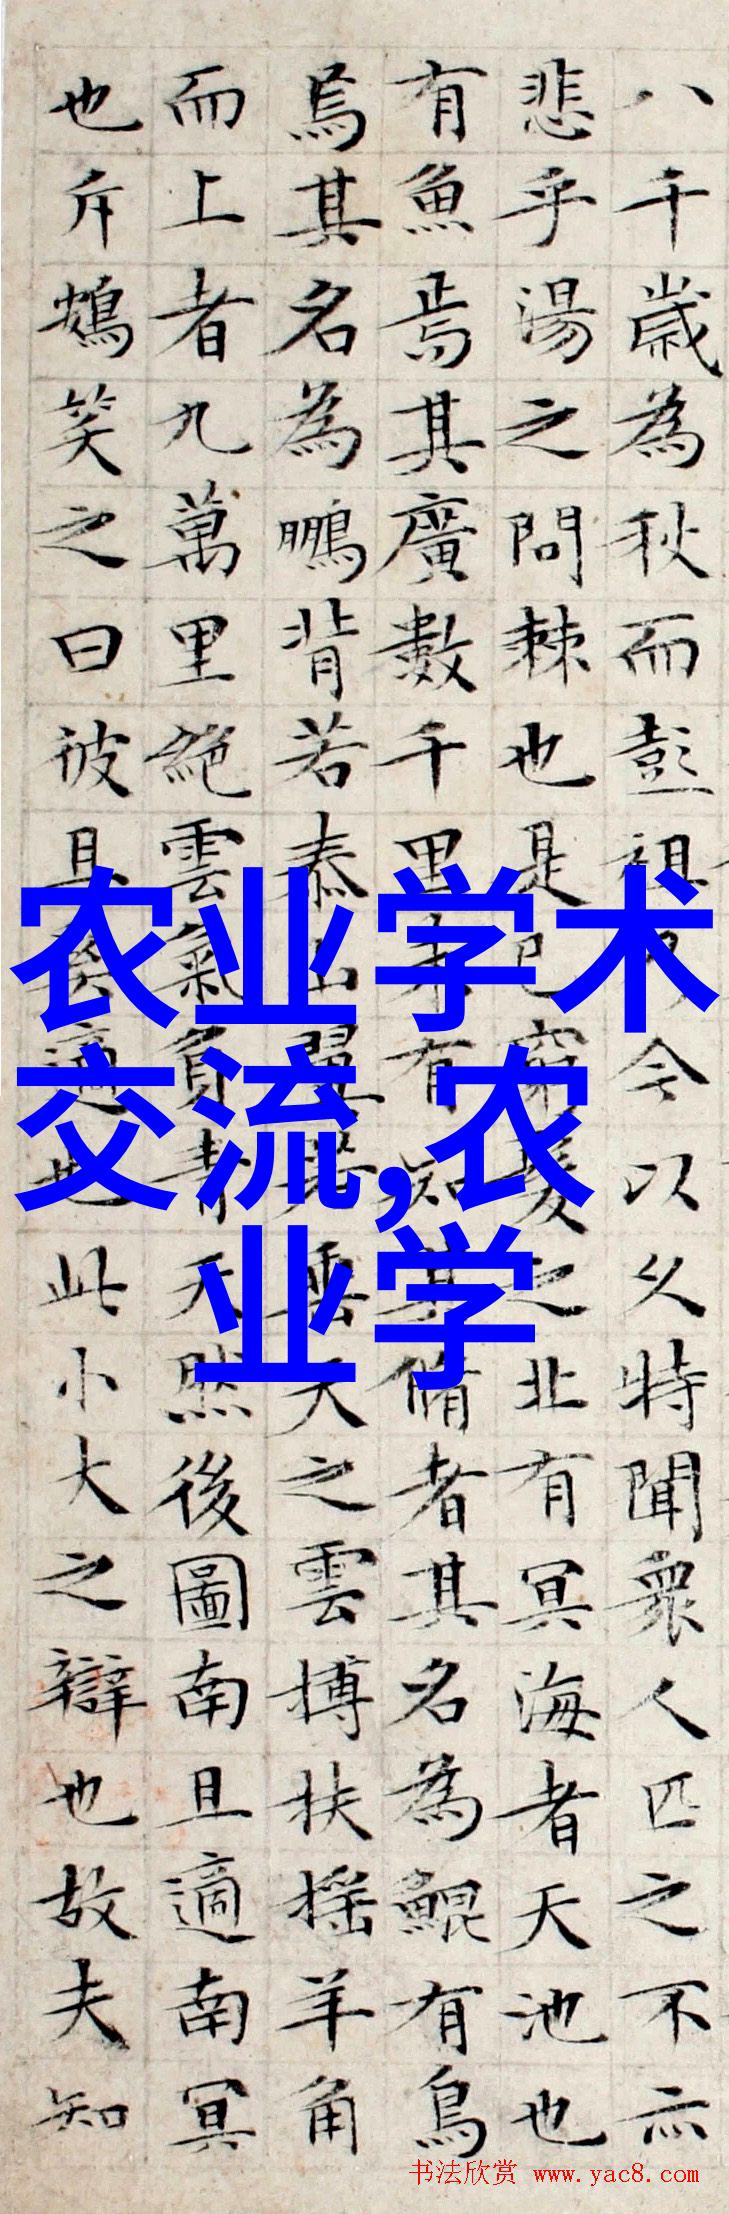 八千歲為秋而彭祖乃今以久特聞衆人匹之不亦
悲乎湯之問棘也是已窮髮之北有冥海者天池也
有魚焉其廣數千里未有知其脩者其名為鯤有鳥
焉其名為鵬背若泰山翼若垂天之雲搏扶搖羊角
而上者九萬里絶雲氣負青天然後圖南且適南冥
也斥鴳笑之曰彼且奚適也此小大之辯也故夫知
农业学术
交流,农
业学
书法欣赏 www.yac8.com